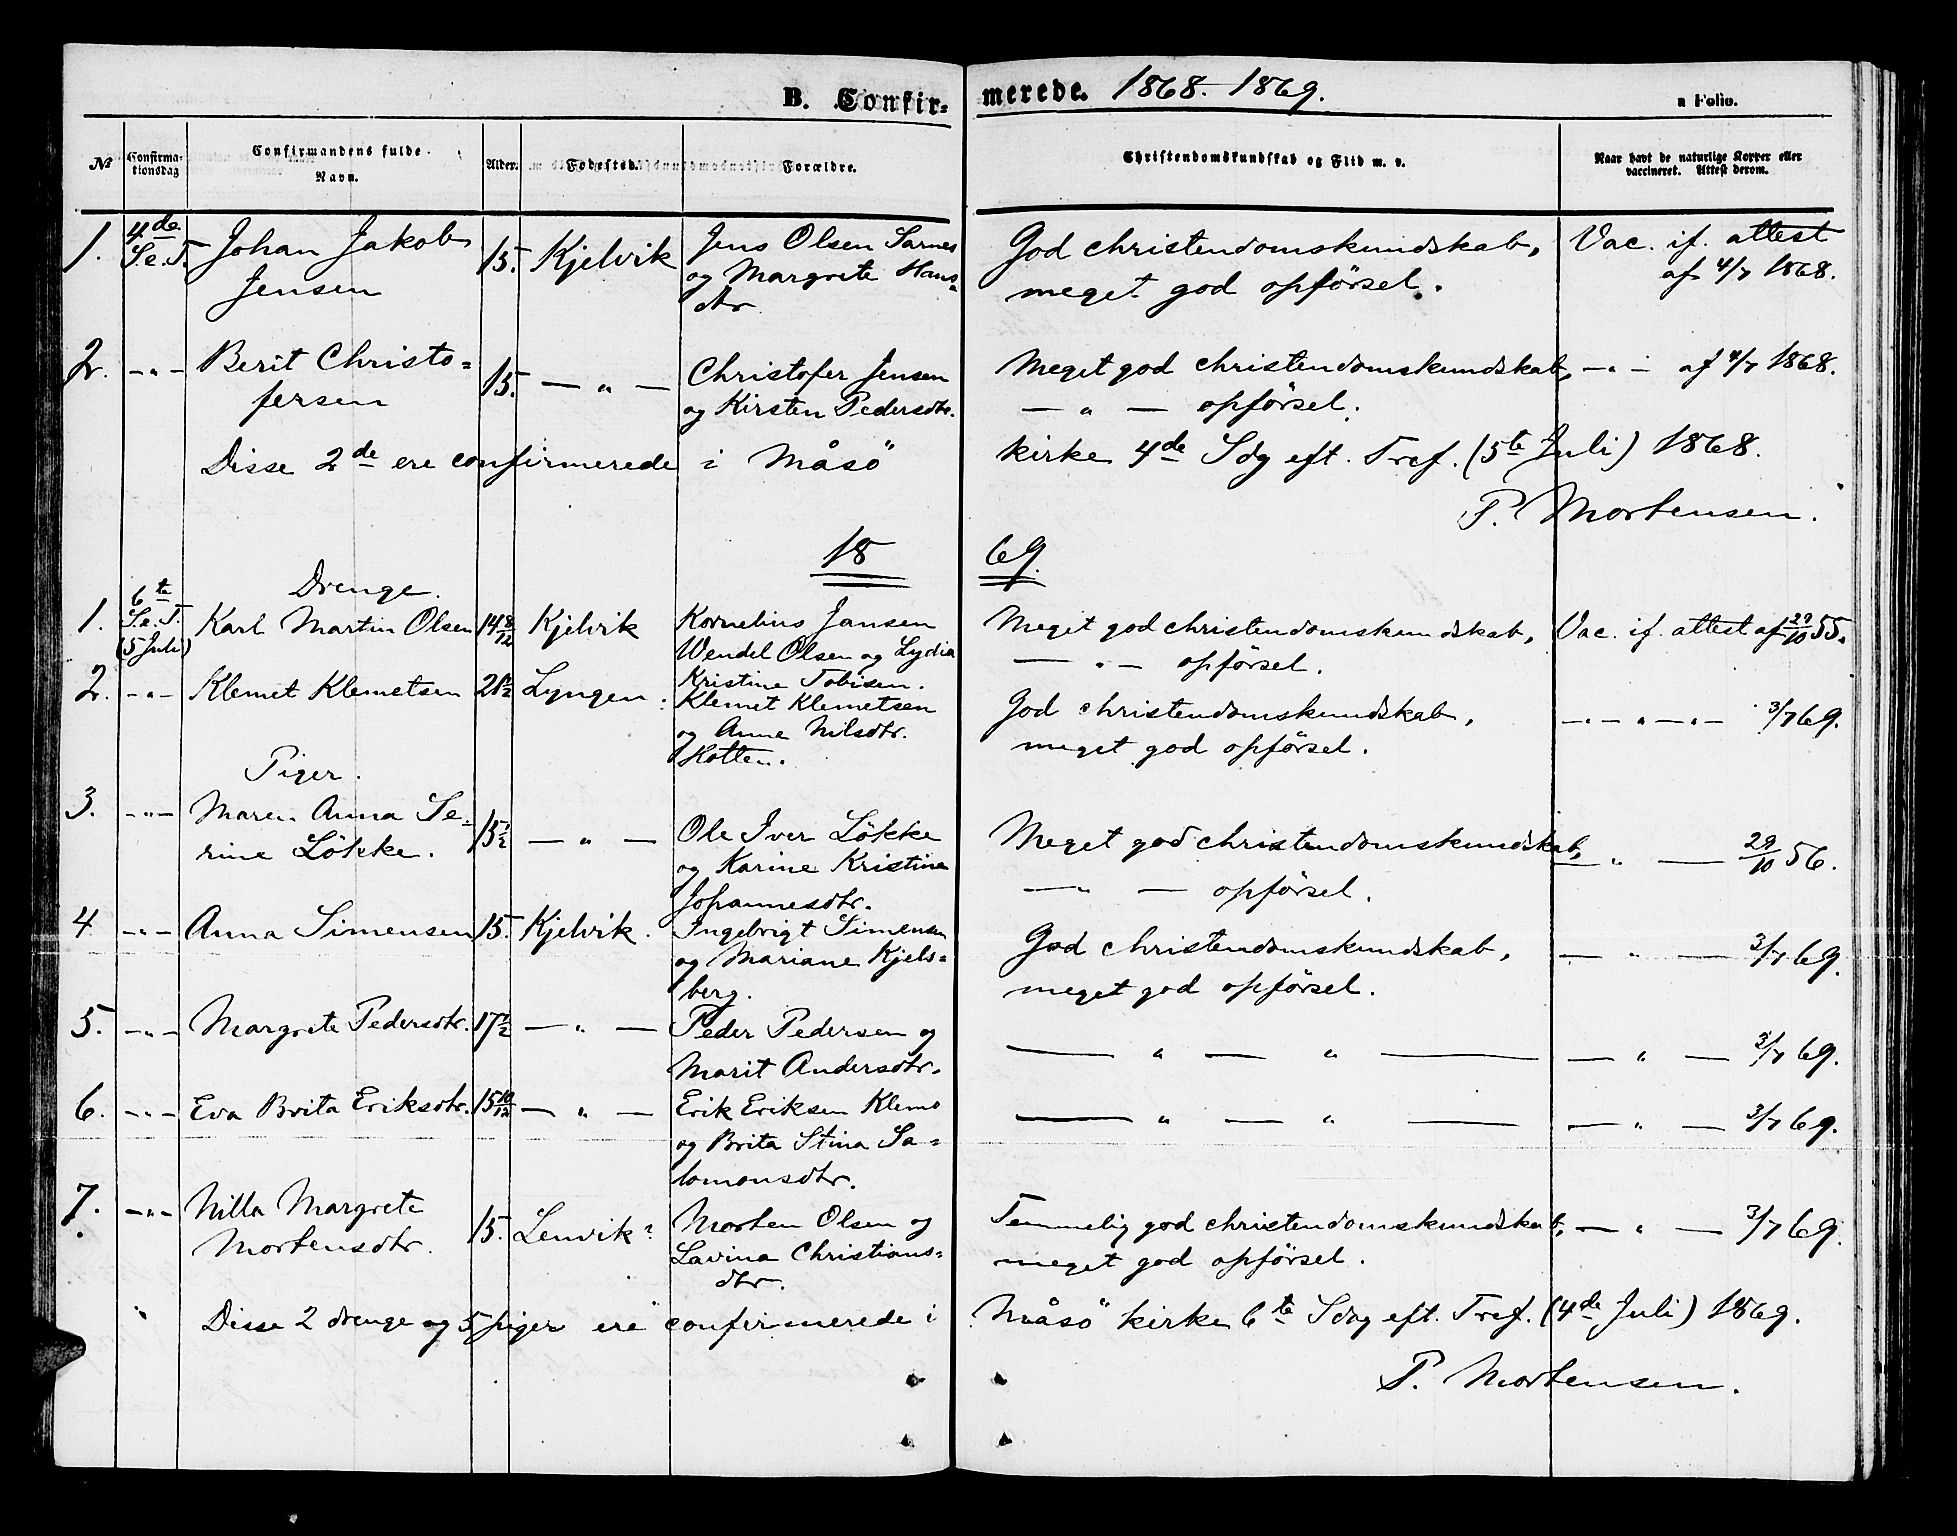 B. Confir- merede. 1868-1869.
a Folio.
№ Confirma-tionsdag Confirmandens fulde Navn. Alder. Fødested. Forældre. Christendomskundskab og Flid m. v. Naar havt de naturlige Kopper eller vaccineret. Attest derom.
1. 4de S. e. T. Johan Jakob 15. Kjelvik Jens Olsen Sarnes God christendomskundskab, Vac. if. attest
Jensen og Margrete Hans- meget god opförsel. af 4/7 1868.
dtr
2. -"- Berit Christo= 15. -"- Christofer Jensen Meget god christendomskundskab, -"- af 4/7 1868.
fersen og Kirsten Pedersdtr. -"- opförsel.
Disse 2de ere confirmerede i Måsö kirke 4de Sdg eft. Tref. (5te Juli) 1868.
P. Mortensen.
1869.
Drenge.
1. 6te S. e. T. (5 Juli) Karl Martin Olsen 14 8/12 Kjelvik Kornelius Jansen Meget god christendomskundskab, Vac. if. attest af 29/10 55.
Wendel Olsen og Lydia -"- opförsel.
Kristine Tobisen.
2. -"- Klemet Klemetsen 21 1/2 Lyngen: Klemet Klemetsen God christendomskundskab, -"-"- 3/7 69.
og Anna Nilsdtr. meget god opförsel.
Hotten.
Piger.
3. -"- Maren Anna Se- 15 1/2 -"- Ole Iver Lökke Meget god christendomskundskab, -"- 29/10 56.
rine Lökke. og Karine Kristine -"- opförsel.
Johannesdtr.
4 -"- Anna Simensen 15. Kjelvik. Ingebrigt Simensen God christendomskundskab, -"- 3/7 69.
og Mariane Kjels= meget god opförsel.
berg.
5. -"- Margrete Pedersdtr. 17 1/2 -"- Peder Pedersen og -"-"- -"- 3/7 69.
Marit Andersdtr.
6. -"- Eva Brita Eriksdtr. 15 10/12 -"- Erik Eriksen Klemo -"-"- -"- 3/7 69.
og Brita Stina Sa=
lomonsdtr.
7. -"- Nilla Margrete 15. Lenvik? Morten Olsen og Temmelig god christendomskundskab, -"- 3/7 69.
Mortensdtr. Lavina Christians= meget god opförsel.
dtr.
Disse 2 drenge og 5 piger ere confirmerede i Måsö kirke 6te Sdg eft. Tref. (4de Juli) 1869.
P. Mortensen.